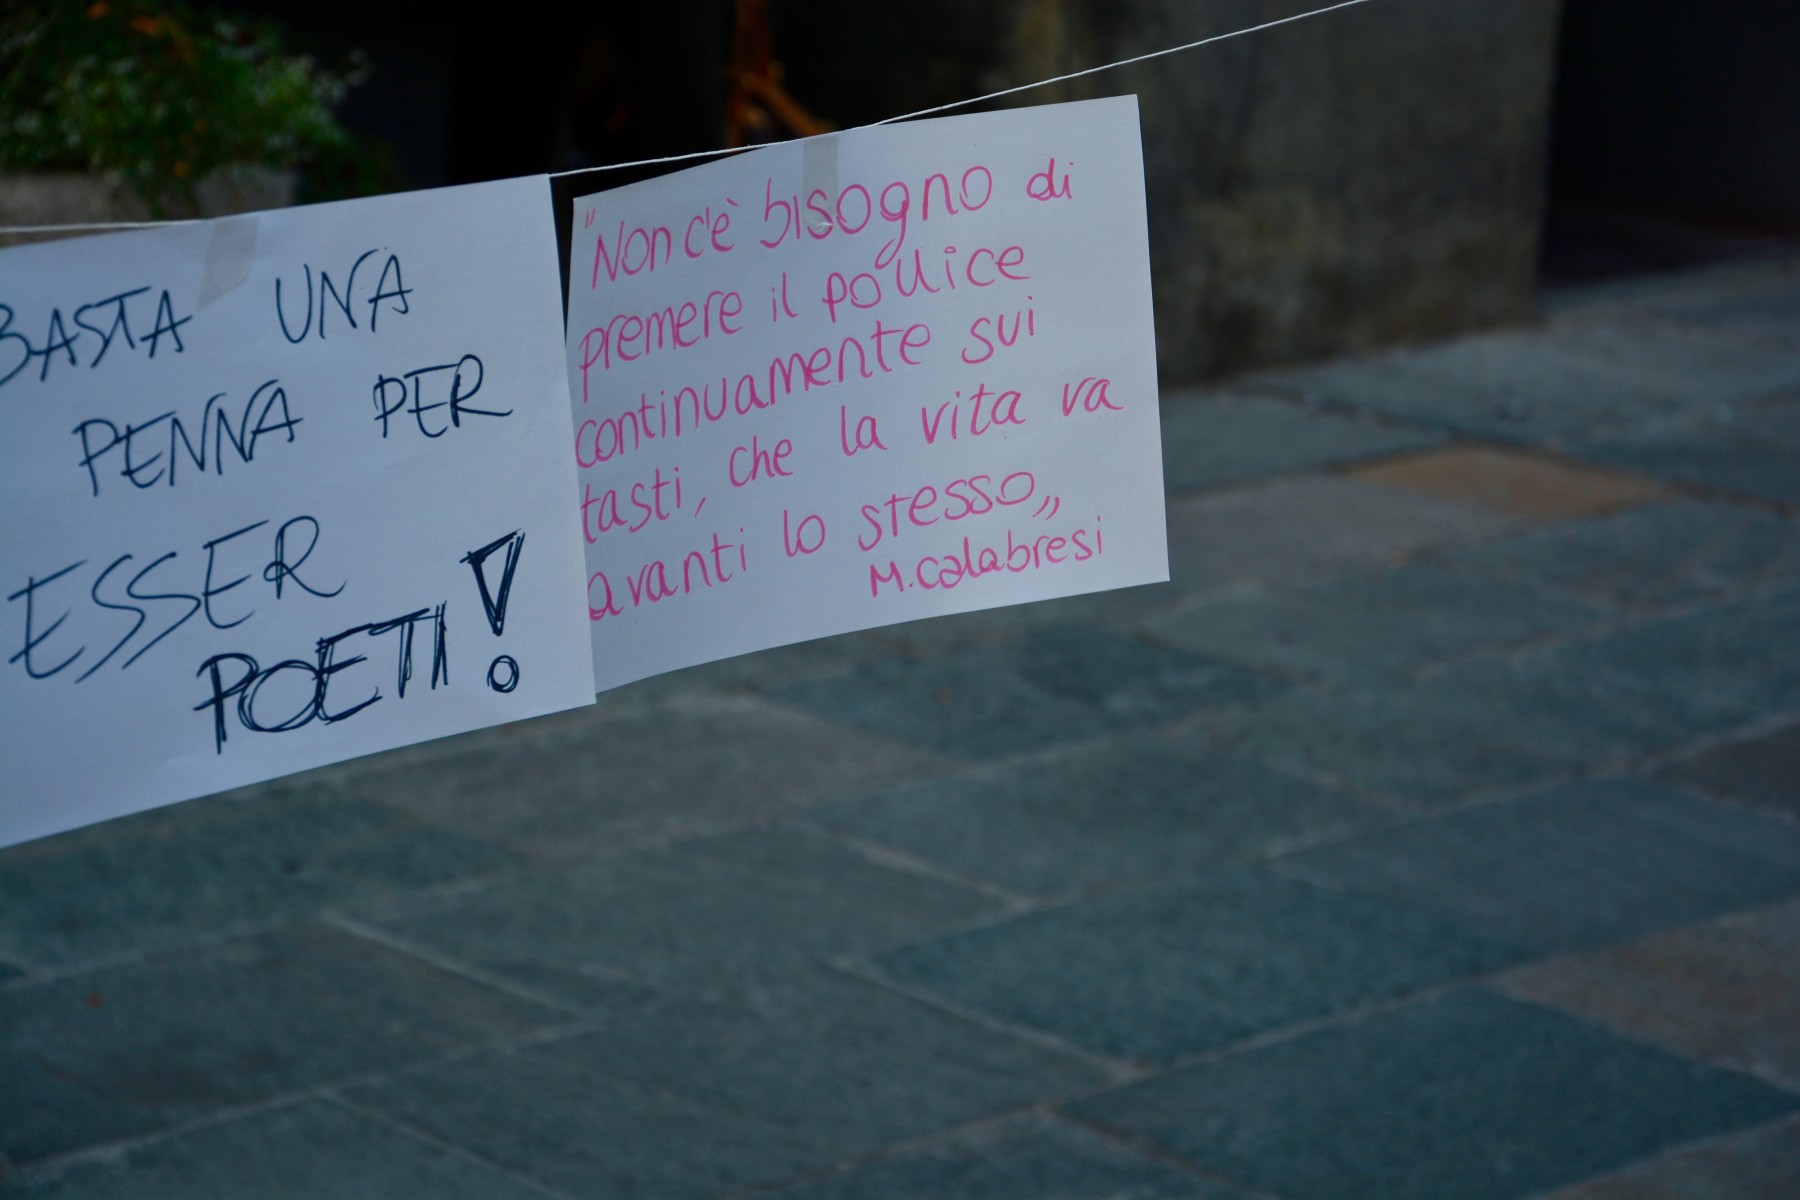 BASTA UNA
PENNA PER
ESSER
POETI!
"Non c'è bisogno di
premere il pollice
continuamente sui
tasti, che la vita va
avanti lo stesso„
M. Calabresi